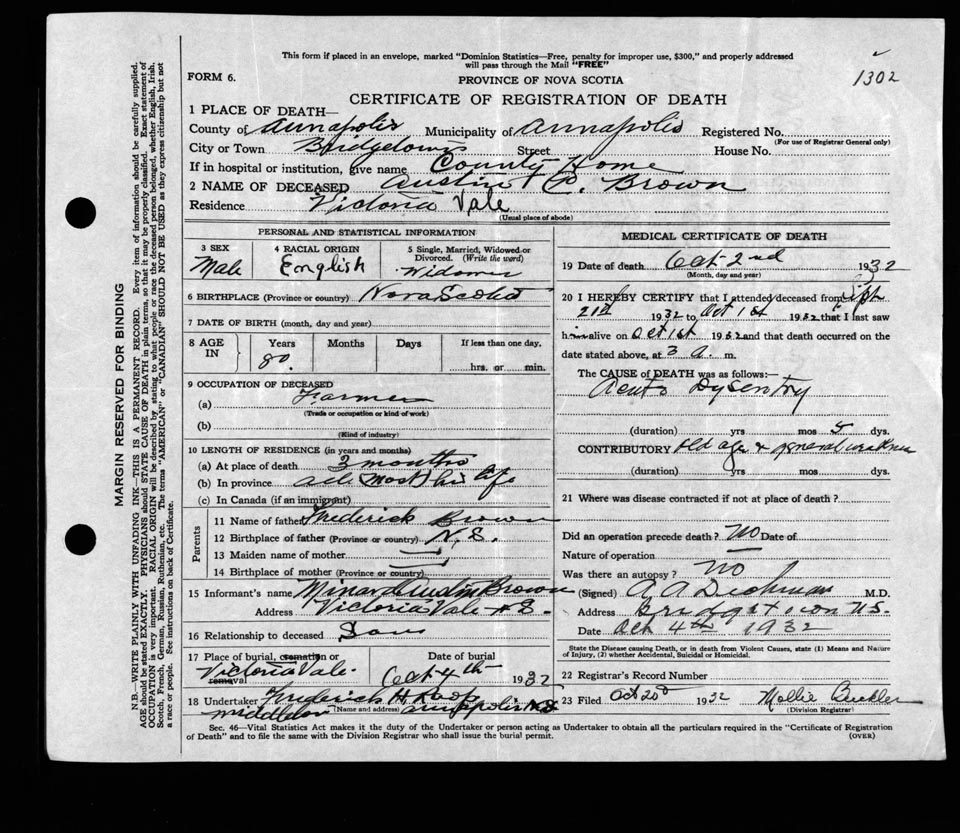 This form if placed in an envelope, marked "Dominion Statistics—Free, penalty for improper use, $300," and properly addressed
will pass through the Mail "FREE"
FORM 6.
PROVINCE OF NOVA SCOTIA
1302
CERTIFICATE OF REGISTRATION OF DEATH
1 PLACE OF DEATH—
County of Annapolis Municipality of Annapolis Registered No.
(For use of Registrar General only)
City or Town Bridgetown Street House No.
If in hospital or institution, give name County Home
2 NAME OF DECEASED Austin P. Brown
Residence Victoria Vale
(Usual place of abode)
PERSONAL AND STATISTICAL INFORMATION
3 SEX 4 RACIAL ORIGIN 5 Single, Married, Widowed or
Divorced. (Write the word)
Male English Widower
6 BIRTHPLACE (Province or country) Nova Scotia
7 DATE OF BIRTH (month, day and year)
8 AGE IN Years Months Days If less than one day,
80. hrs. or min.
9 OCCUPATION OF DECEASED
(a) Farmer
(Trade or occupation or kind of work)
(b)
(Kind of industry)
10 LENGTH OF RESIDENCE (in years and months)
(a) At place of death 3 months
(b) In province all most his life
(c) In Canada (if an immigrant)
Parents
11 Name of father Frederick Brown
12 Birthplace of father (Province or country) N.S.
13 Maiden name of mother —
14 Birthplace of mother (Province or country) —
15 Informant's name Minard Austin Brown
Address Victoria Vale N.S.
16 Relationship to deceased Son
17 Place of burial, cremation or removal Date of burial
Victoria Vale Oct 4th 1932
18 Undertaker Frederick H
Middleton Annapolis N.S.
(Name and address)
MEDICAL CERTIFICATE OF DEATH
19 Date of death Oct 2nd 1932
(Month, day and year)
20 I HEREBY CERTIFY that I attended deceased from Sept
21st 1932 to Oct 1st 1932 that I last saw
him alive on Oct 1st 1932 and that death occurred on the
date stated above, at 3 a. m.
The CAUSE of DEATH was as follows:—
Acute Dysentry
(duration) yrs mos 5 dys.
CONTRIBUTORY Old age & general weakness
(duration) yrs mos dys.
21 Where was disease contracted if not at place of death?
Did an operation precede death? No Date of
Nature of operation —
Was there an autopsy? No
(Signed) M.D.
Address Bridgetown N.S.
Date Oct 4th 1932
State the Disease causing Death, or in death from Violent Causes, state (1) Means and Nature
of Injury, (2) whether Accidental, Suicidal or Homicidal.
22 Registrar's Record Number
23 Filed Oct 20 1932 Mollie
(Division Registrar)
Sec. 46—Vital Statistics Act makes it the duty of the Undertaker or person acting as Undertaker to obtain all the particulars required in the "Certificate of Registration
of Death" and to file the same with the Division Registrar who shall issue the burial permit. (OVER)
MARGIN RESERVED FOR BINDING
N.B.—WRITE PLAINLY WITH UNFADING INK—THIS IS A PERMANENT RECORD. Every item of information should be carefully supplied.
AGE should be stated EXACTLY. PHYSICIANS should STATE CAUSE OF DEATH in plain terms, so that it may be properly classified. Exact statement of
OCCUPATION is very important. RACIAL ORIGIN will be described by stating to what people or race the deceased person belonged, whether English, Irish,
Scotch, French, German, Russian, Ruthenian, etc. The terms "AMERICAN" or "CANADIAN" SHOULD NOT BE USED as they express citizenship but not
a race or people. See instructions on back of Certificate.